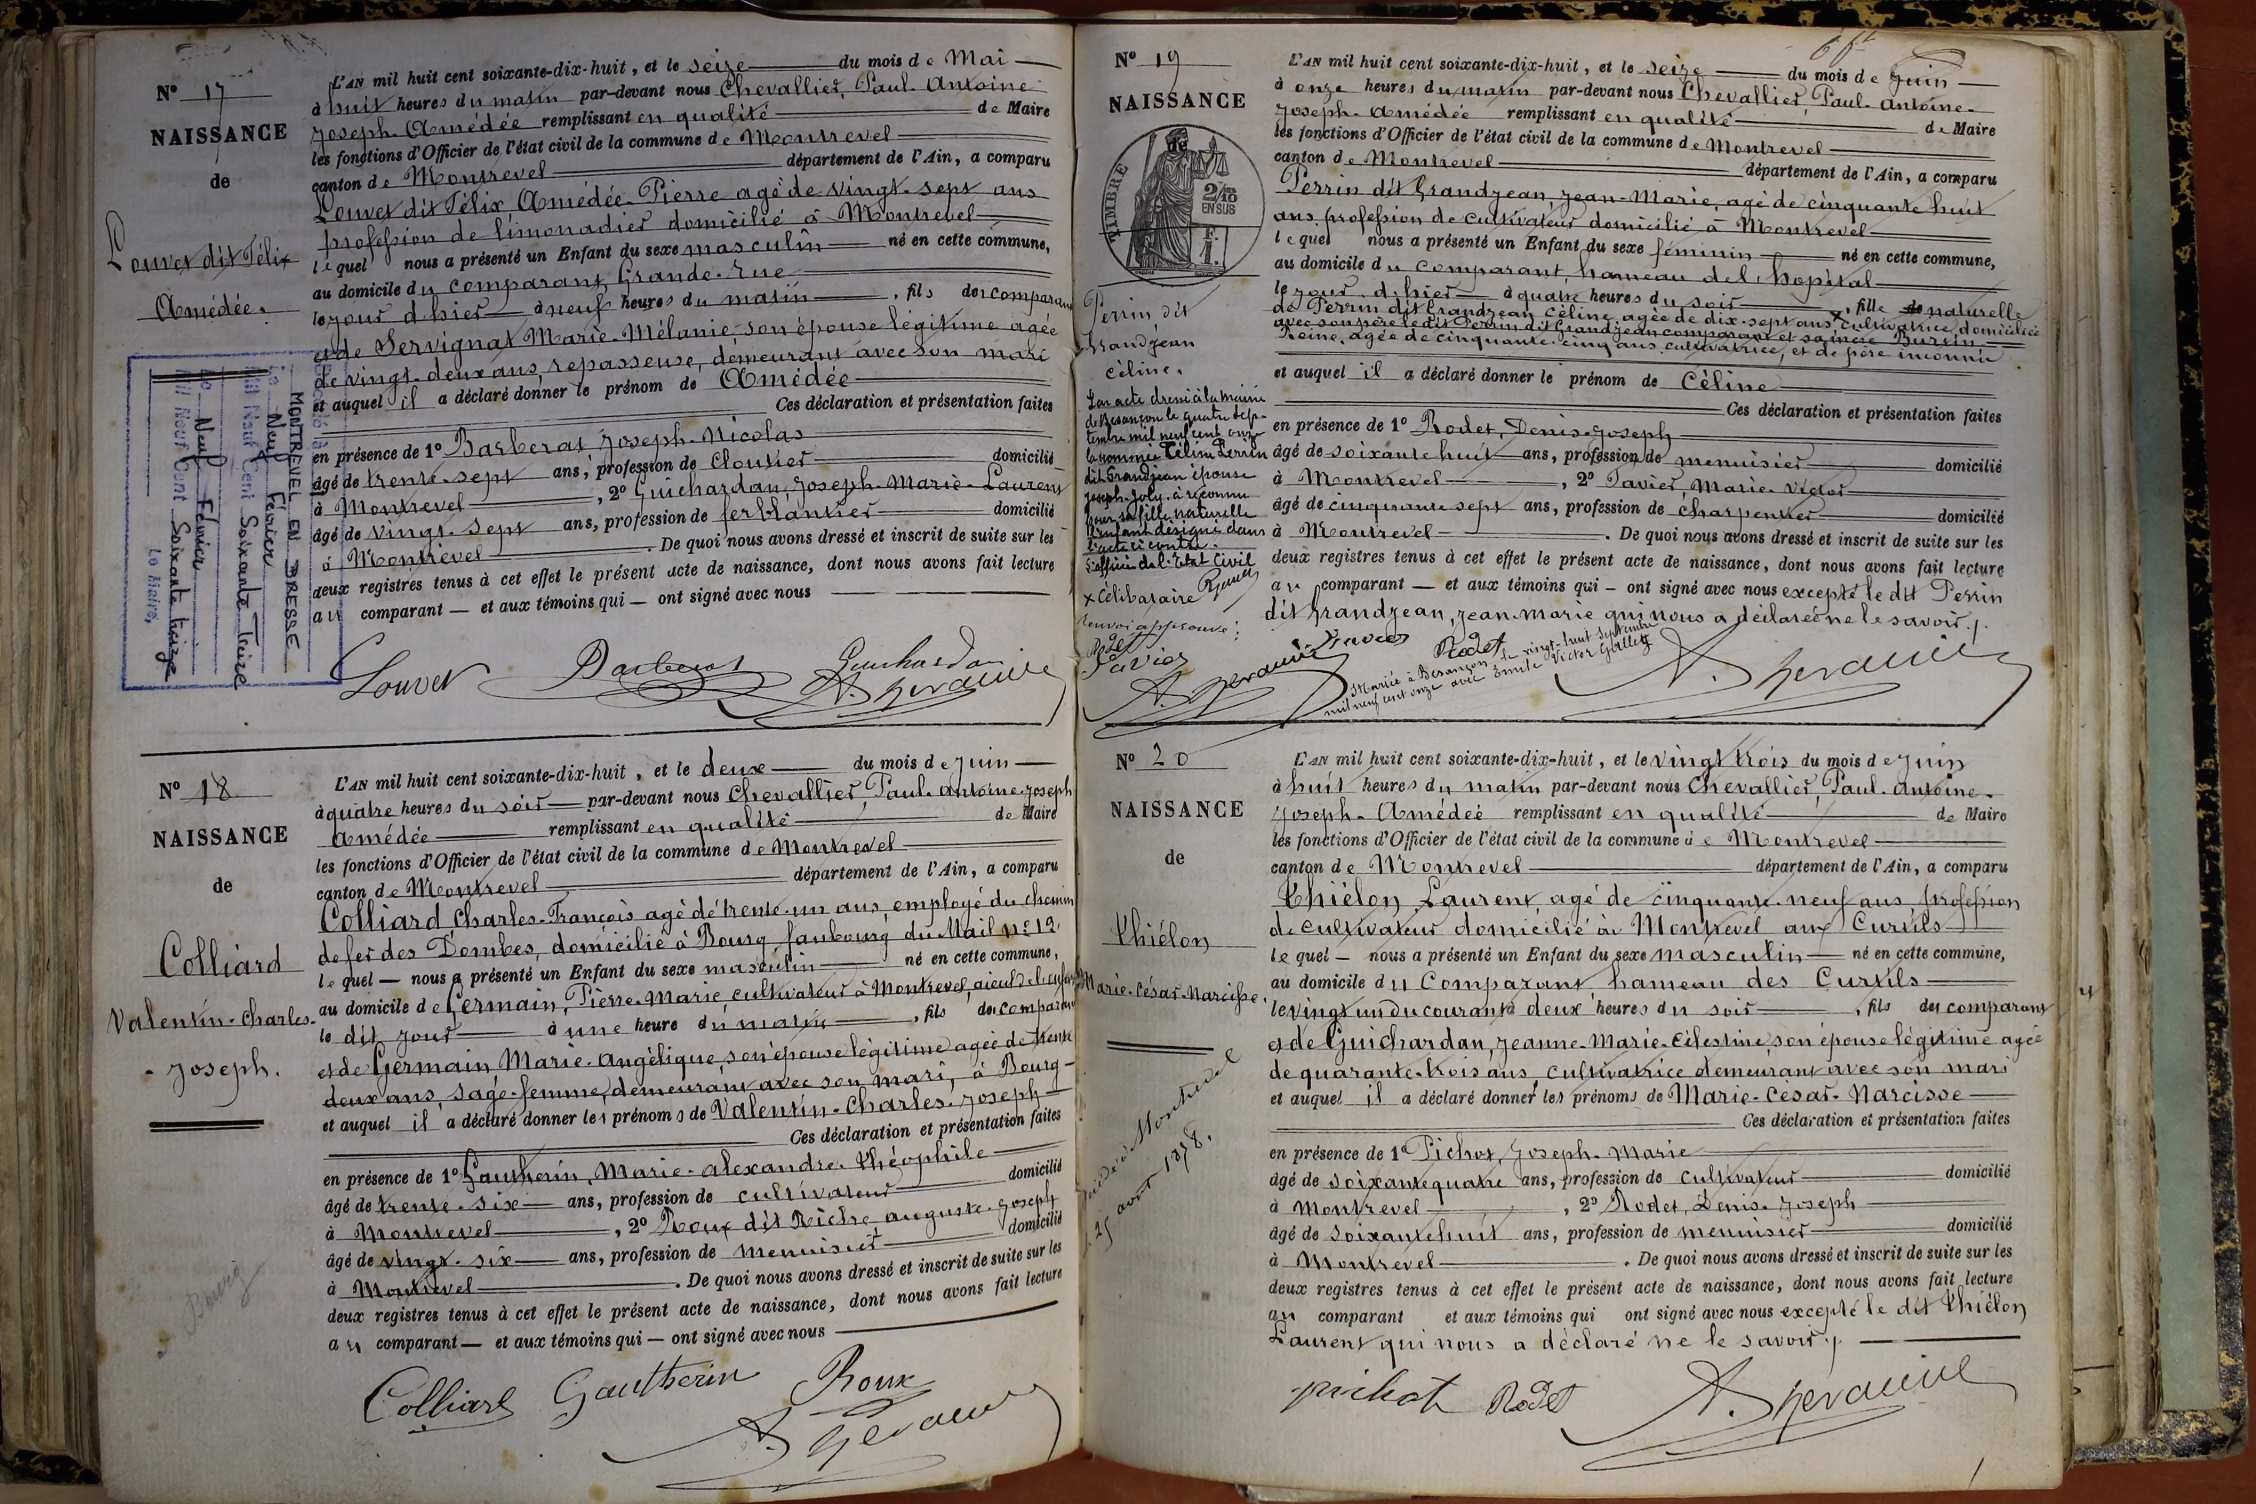 N° 17
NAISSANCE
de
Louvet dit Félix
Amédée.
L'AN mil huit cent soixante-dix-huit, et le seize du mois de Mai
à huit heures du matin par-devant nous Chevallier, Paul-Antoine
Joseph-Amédée remplissant en qualité de Maire
les fonctions d'Officier de l'état civil de la commune de Montrevel
canton de Montrevel département de l'Ain, a comparu
Louvet dit Félix Amédée-Pierre agé de vingt-sept ans
profession de limonadier domicilié à Montrevel
lequel nous a présenté un Enfant du sexe masculin né en cette commune,
au domicile du comparant, Grande-rue
le jour d'hier à neuf heures du matin, fils du comparant
et de Servignat Marie-Mélanie, son épouse légitime agée
de vingt-deux ans, repasseuse, demeurant avec son mari
et auquel il a déclaré donner le prénom de Amédée
Ces déclaration et présentation faites
en présence de 1° Barberat Joseph-Nicolas
âgé de trente-sept ans, profession de cloutier domicilié
à Montrevel, 2° Guichardan, Joseph-Marie-Laurent
âgé de vingt-sept ans, profession de ferblantier domicilié
à Montrevel. De quoi nous avons dressé et inscrit de suite sur les
deux registres tenus à cet effet le présent acte de naissance, dont nous avons fait lecture
au comparant et aux témoins qui ont signé avec nous
MONTREVEL EN BRESSE
Le Neuf Février
Mil Neuf Cent Soixante Treize
Le Neuf Février
Mil Neuf Cent Soixante treize
Le Maire,
Louvet Barberat Guichardan
N° 18
NAISSANCE
de
Colliard
Valentin-Charles-
Joseph.
L'AN mil huit cent soixante-dix-huit, et le deux du mois de Juin
à quatre heures du soir par-devant nous Chevallier, Paul-Antoine-Joseph
Amédée remplissant en qualité de Maire
les fonctions d'Officier de l'état civil de la commune de Montrevel
canton de Montrevel département de l'Ain, a comparu
Colliard Charles-François agé de trente-un ans, employé du chemin
de fer des Dombes, domicilié à Bourg, faubourg du Mail n° 12,
lequel nous a présenté un Enfant du sexe masculin né en cette commune,
au domicile de Germain, Pierre-Marie, cultivateur à Montrevel, aieul de l'enfant
le dit jour à une heure du matin, fils du comparant
et de Germain Marie-Angélique, son épouse légitime agée de trente
deux ans, sage-femme, demeurant avec son mari, à Bourg
et auquel il a déclaré donner les prénoms de Valentin-Charles-Joseph
Ces déclaration et présentation faites
en présence de 1° Gautherin, Marie-Alexandre-Théophile
âgé de trente-six ans, profession de cultivateur domicilié
à Montrevel, 2° Roux dit Riche, Auguste-Joseph
âgé de vingt-six ans, profession de menuisier domicilié
à Montrevel. De quoi nous avons dressé et inscrit de suite sur les
deux registres tenus à cet effet le présent acte de naissance, dont nous avons fait lecture
au comparant et aux témoins qui ont signé avec nous
Bourg
Colliard Gautherin Roux
N° 19
NAISSANCE
TIMBRE
2/10
EN SUS
F.
1.
Perrin dit
Grandjean
Céline.
Par acte dressé à la mairie
de Besançon le quatre Sep-
tembre mil neuf cent onze
la nommée Céline Perrin
dit Grandjean épouse
Joseph Joly a reconnu
pour sa fille naturelle
l'enfant désigné dans
l'acte ci contre.
L'officier de l'Etat Civil
x Célibataire
Renvoi approuvé:
Rodet
Tavier
L'AN mil huit cent soixante-dix-huit, et le seize du mois de Juin
à onze heures du matin par-devant nous Chevallier, Paul-Antoine-
Joseph-Amédée remplissant en qualité de Maire
les fonctions d'Officier de l'état civil de la commune de Montrevel
canton de Montrevel département de l'Ain, a comparu
Perrin dit Grandjean, Jean-Marie, agé de cinquante huit
ans, profession de cultivateur domicilié à Montrevel
lequel nous a présenté un Enfant du sexe féminin né en cette commune,
au domicile du comparant, hameau de l'hopital
le jour d'hier à quatre heures du soir, fille naturelle
de Perrin dit Grandjean Céline, agée de dix-sept ans x, cultivatrice, domiciliée
avec son père le dit Perrin dit Grandjean comparant et sa mère Burtin
Reine, agée de cinquante-cinq ans, cultivatrice, et de père inconnu
et auquel il a déclaré donner le prénom de Céline
Ces déclaration et présentation faites
en présence de 1° Rodet, Denis-Joseph
âgé de soixante huit ans, profession de menuisier domicilié
à Montrevel, 2° Tavier, Marie-Victor
âgé de cinquante sept ans, profession de charpentier domicilié
à Montrevel. De quoi nous avons dressé et inscrit de suite sur les
deux registres tenus à cet effet le présent acte de naissance, dont nous avons fait lecture
au comparant et aux témoins qui ont signé avec nous excepté le dit Perrin
dit Grandjean, Jean-Marie qui nous a déclaré ne le savoir.
Tavier Rodet
Mariée à Besançon le vingt-huit Septembre
mil neuf cent onze avec Emile Victor
N° 20
NAISSANCE
de
Thiélon
Marie-César-Narcisse.
Décédé à Montrevel
25 août 1878.
L'AN mil huit cent soixante-dix-huit, et le vingt trois du mois de Juin
à huit heures du matin par-devant nous Chevallier, Paul-Antoine-
Joseph-Amédée remplissant en qualité de Maire
les fonctions d'Officier de l'état civil de la commune de Montrevel
canton de Montrevel département de l'Ain, a comparu
Thiélon Laurent, agé de cinquante-neuf ans, profession
de cultivateur domicilié à Montrevel aux Curtils
lequel nous a présenté un Enfant du sexe masculin né en cette commune,
au domicile du comparant hameau des Curtils
le vingt un du courant à deux heures du soir, fils du comparant
et de Guichardan, Jeanne-Marie-Célestine, son épouse légitime agée
de quarante-trois ans, cultivatrice demeurant avec son mari
et auquel il a déclaré donner les prénoms de Marie-César-Narcisse
Ces déclaration et présentation faites
en présence de 1° Pichot, Joseph-Marie
âgé de soixante quatre ans, profession de cultivateur domicilié
à Montrevel, 2° Rodet, Denis-Joseph
âgé de soixante huit ans, profession de menuisier domicilié
à Montrevel. De quoi nous avons dressé et inscrit de suite sur les
deux registres tenus à cet effet le présent acte de naissance, dont nous avons fait lecture
au comparant et aux témoins qui ont signé avec nous excepté le dit Thiélon
Laurent qui nous a déclaré ne le savoir.
pichot Rodet